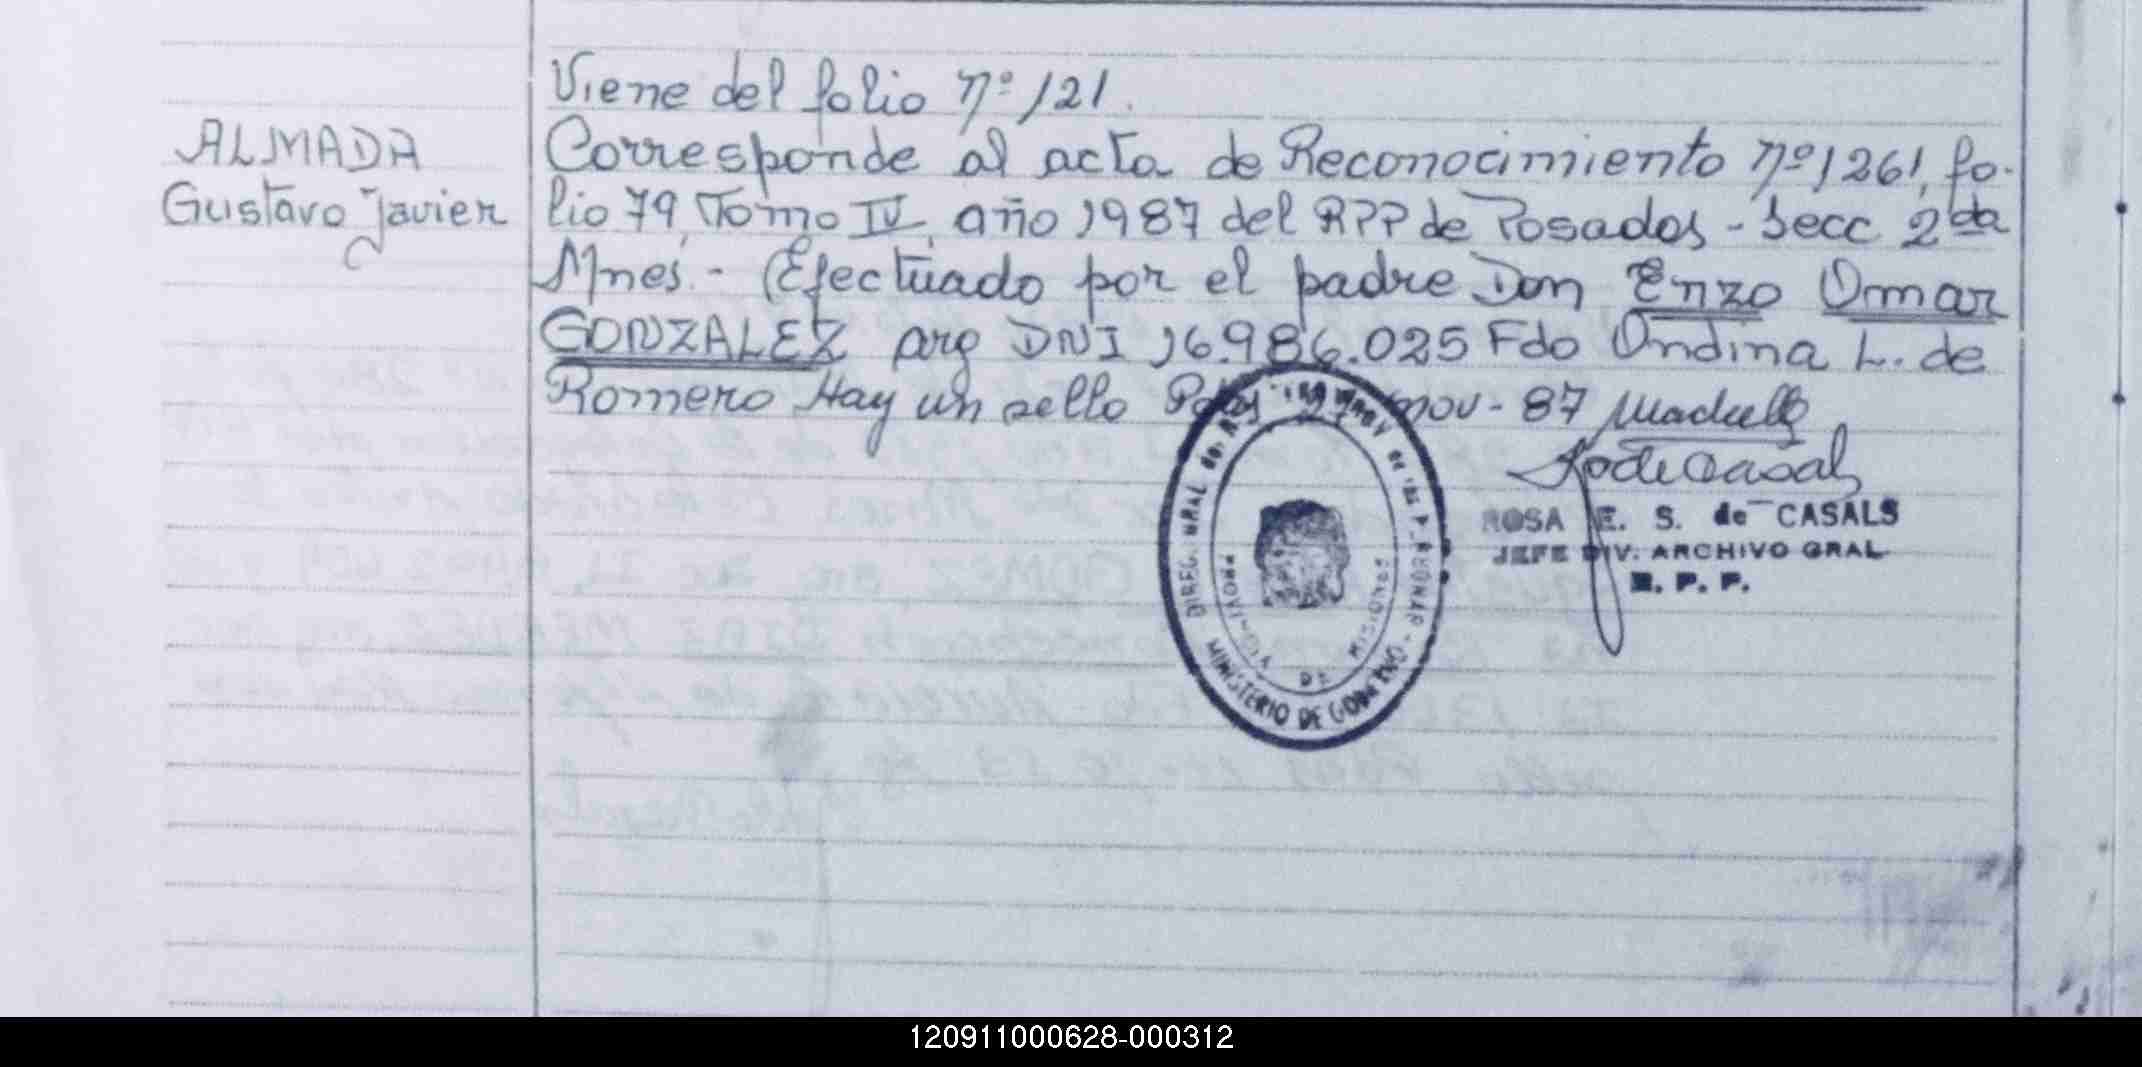 Viene del folio nº 121.
ALMADA
Gustavo Javier
Corresponde al acta de Reconocimiento nº 1261, fo-
lio 79, Tomo IV, año 1987 del RPP de Posadas - Secc 2da
Mnes. - (Efectuado por el padre Don Enzo Omar
GONZALEZ arg DNI 16.986.025 Fdo Ondina L. de
Romero Hay un sello nov - 87
ROSA E. S. de CASALS
JEFE DIV. ARCHIVO GRAL
R. P. P.
MINISTERIO DE GOBIERNO
PROVINCIA DE MISIONES
120911000628-000312